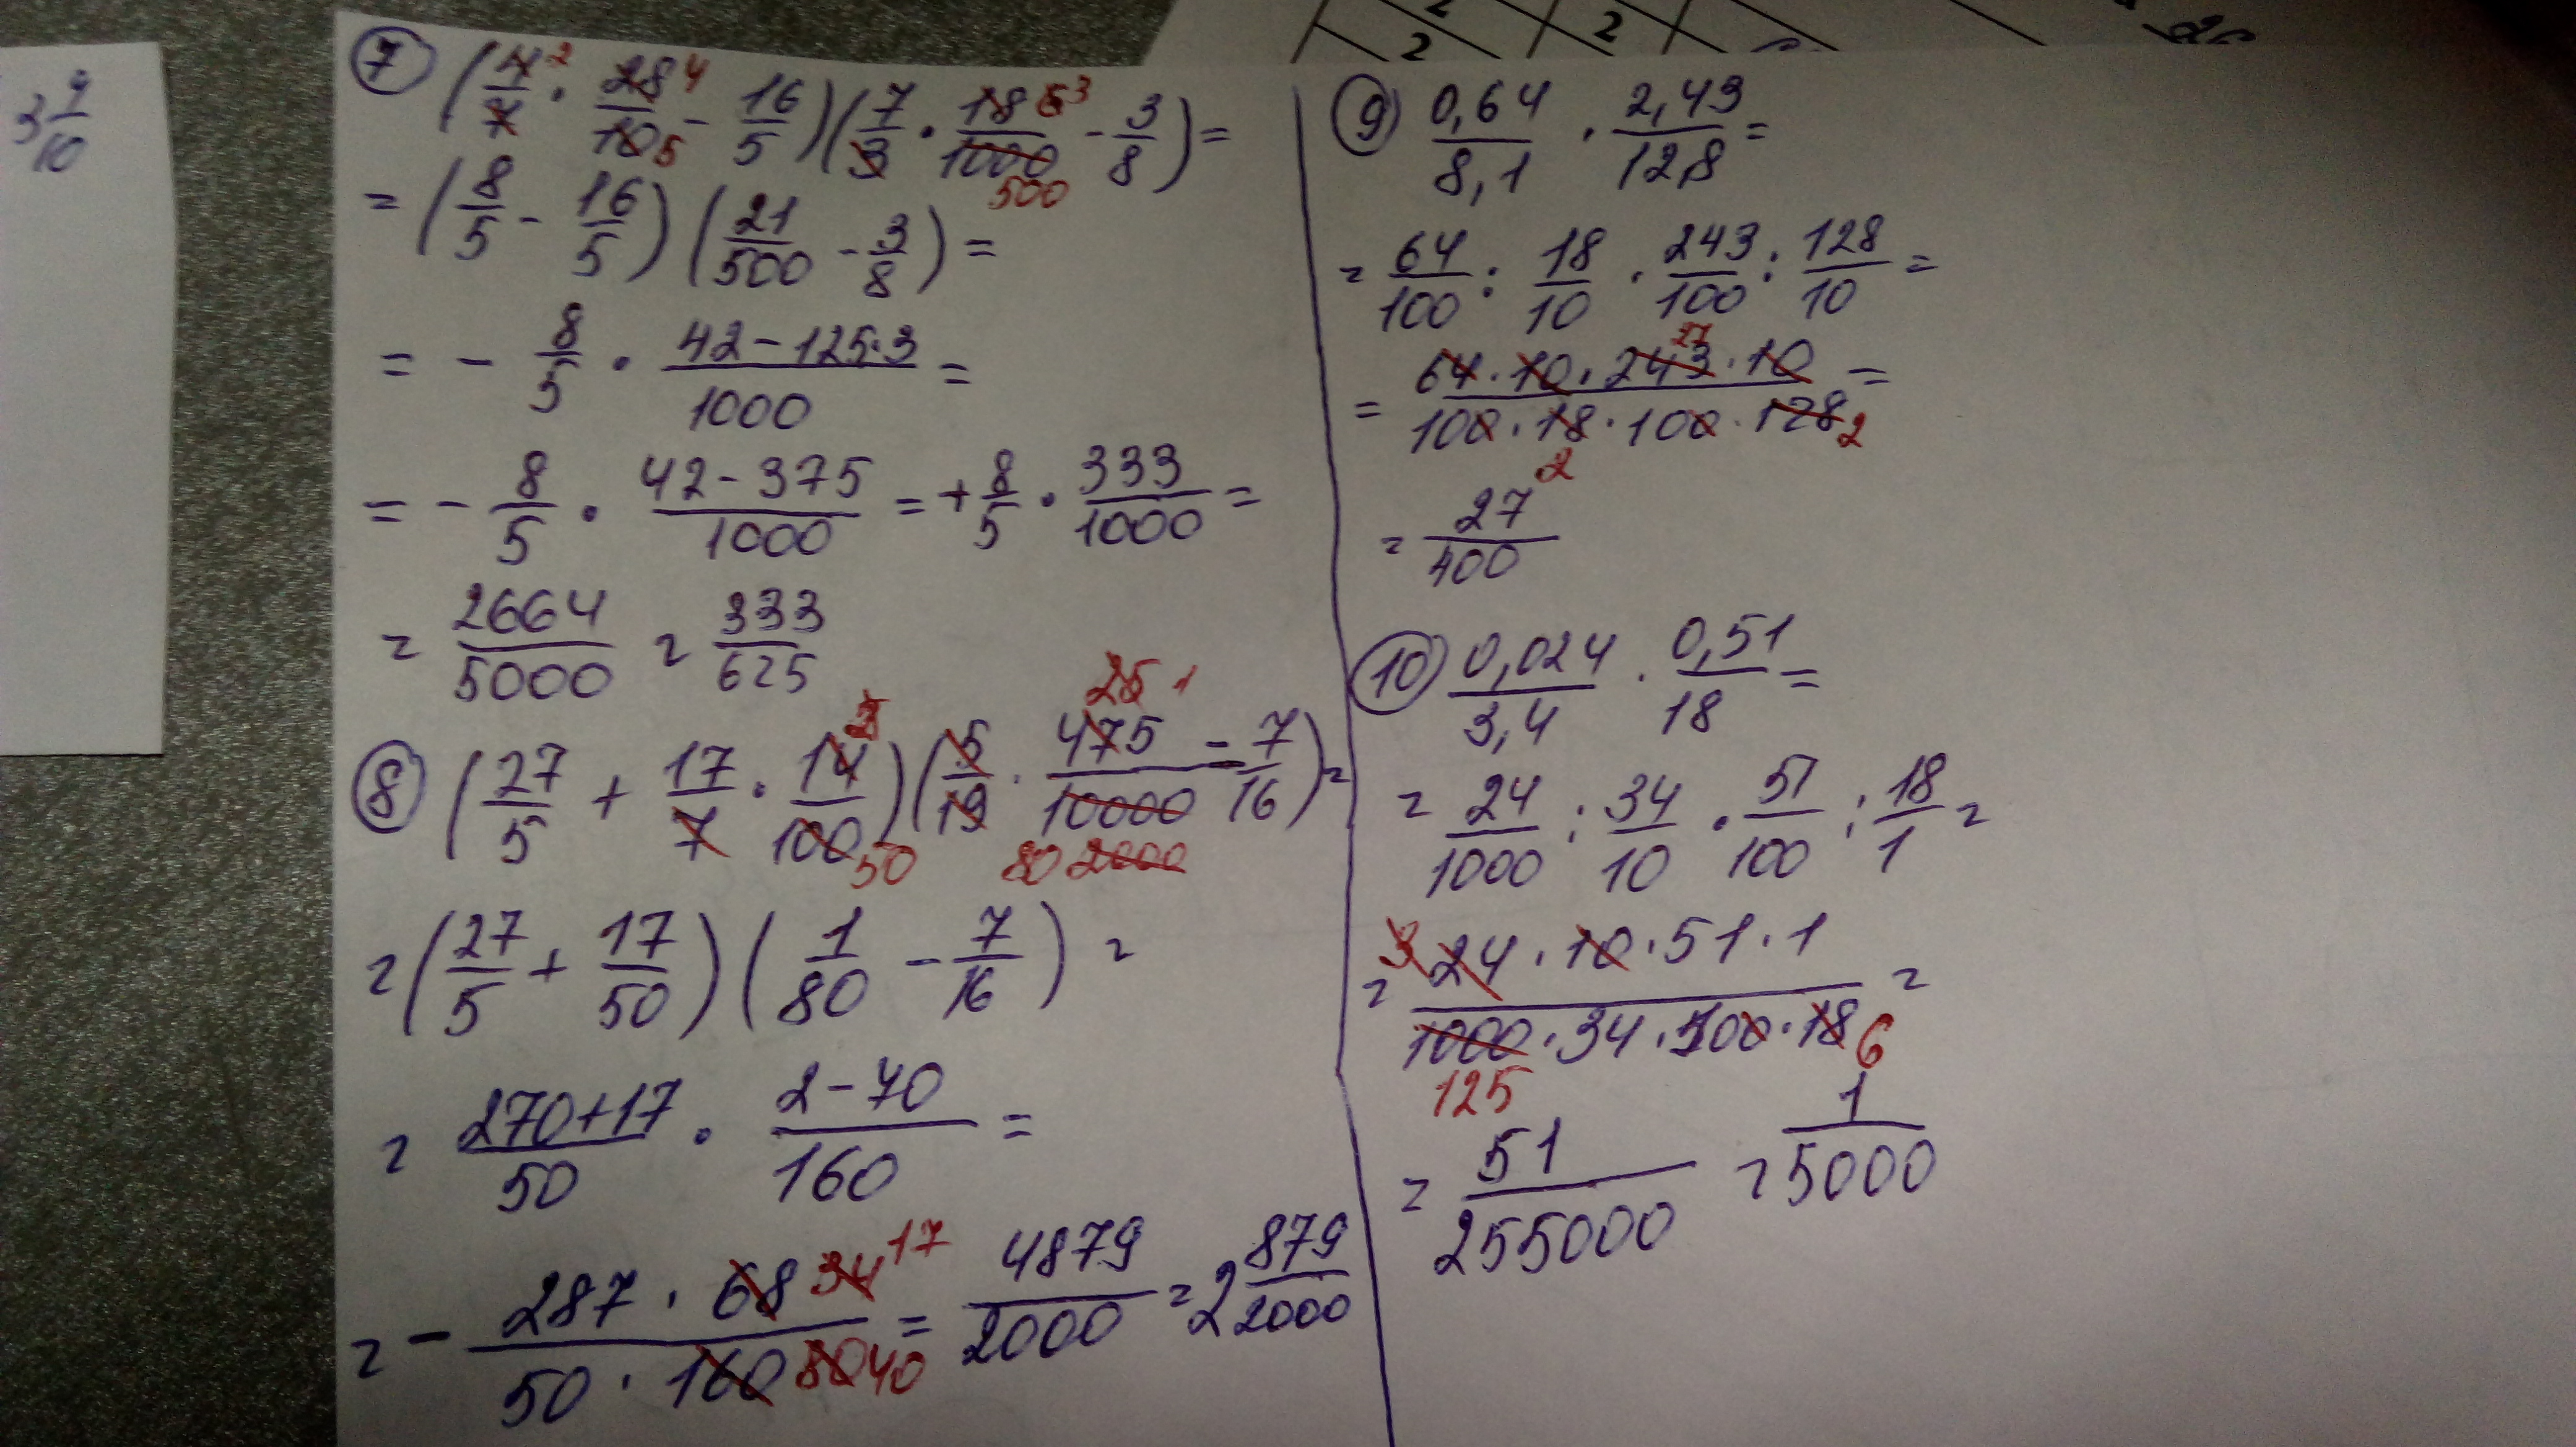 3 9/10
2 2 2
⑦ (4/7 2 · 28/10 4 5 - 16/5)(7/3 · 18/1000 6 3 500 - 3/8) =
= (8/5 - 16/5)(21/500 - 3/8) =
= - 8/5 · (42 - 125·3)/1000 =
= - 8/5 · (42 - 375)/1000 = + 8/5 · 333/1000 =
= 2664/5000 = 333/625
⑧ (27/5 + 17/7 · 14/100 2 50)(5/19 · 475/10000 25 1 80 2000 - 7/16) =
= (27/5 + 17/50)(1/80 - 7/16) =
= (270+17)/50 · (2-70)/160 =
= - (287 · 68 34 17)/(50 · 160 80 40) = 4879/2000 = 2 879/2000
⑨ 0,64/8,1 · 2,43/12,8 =
= 64/100 : 18/10 · 243/100 : 128/10 =
= (64·10·243·10)/(100·18·100·128) 27 2 2 =
= 27/400
⑩ 0,024/3,4 · 0,51/18 =
= 24/1000 : 34/10 · 51/100 : 18/1 =
= (3 24·10·51·1)/(1000·34·100·18 6) 125 =
= 51/255000 = 1/5000